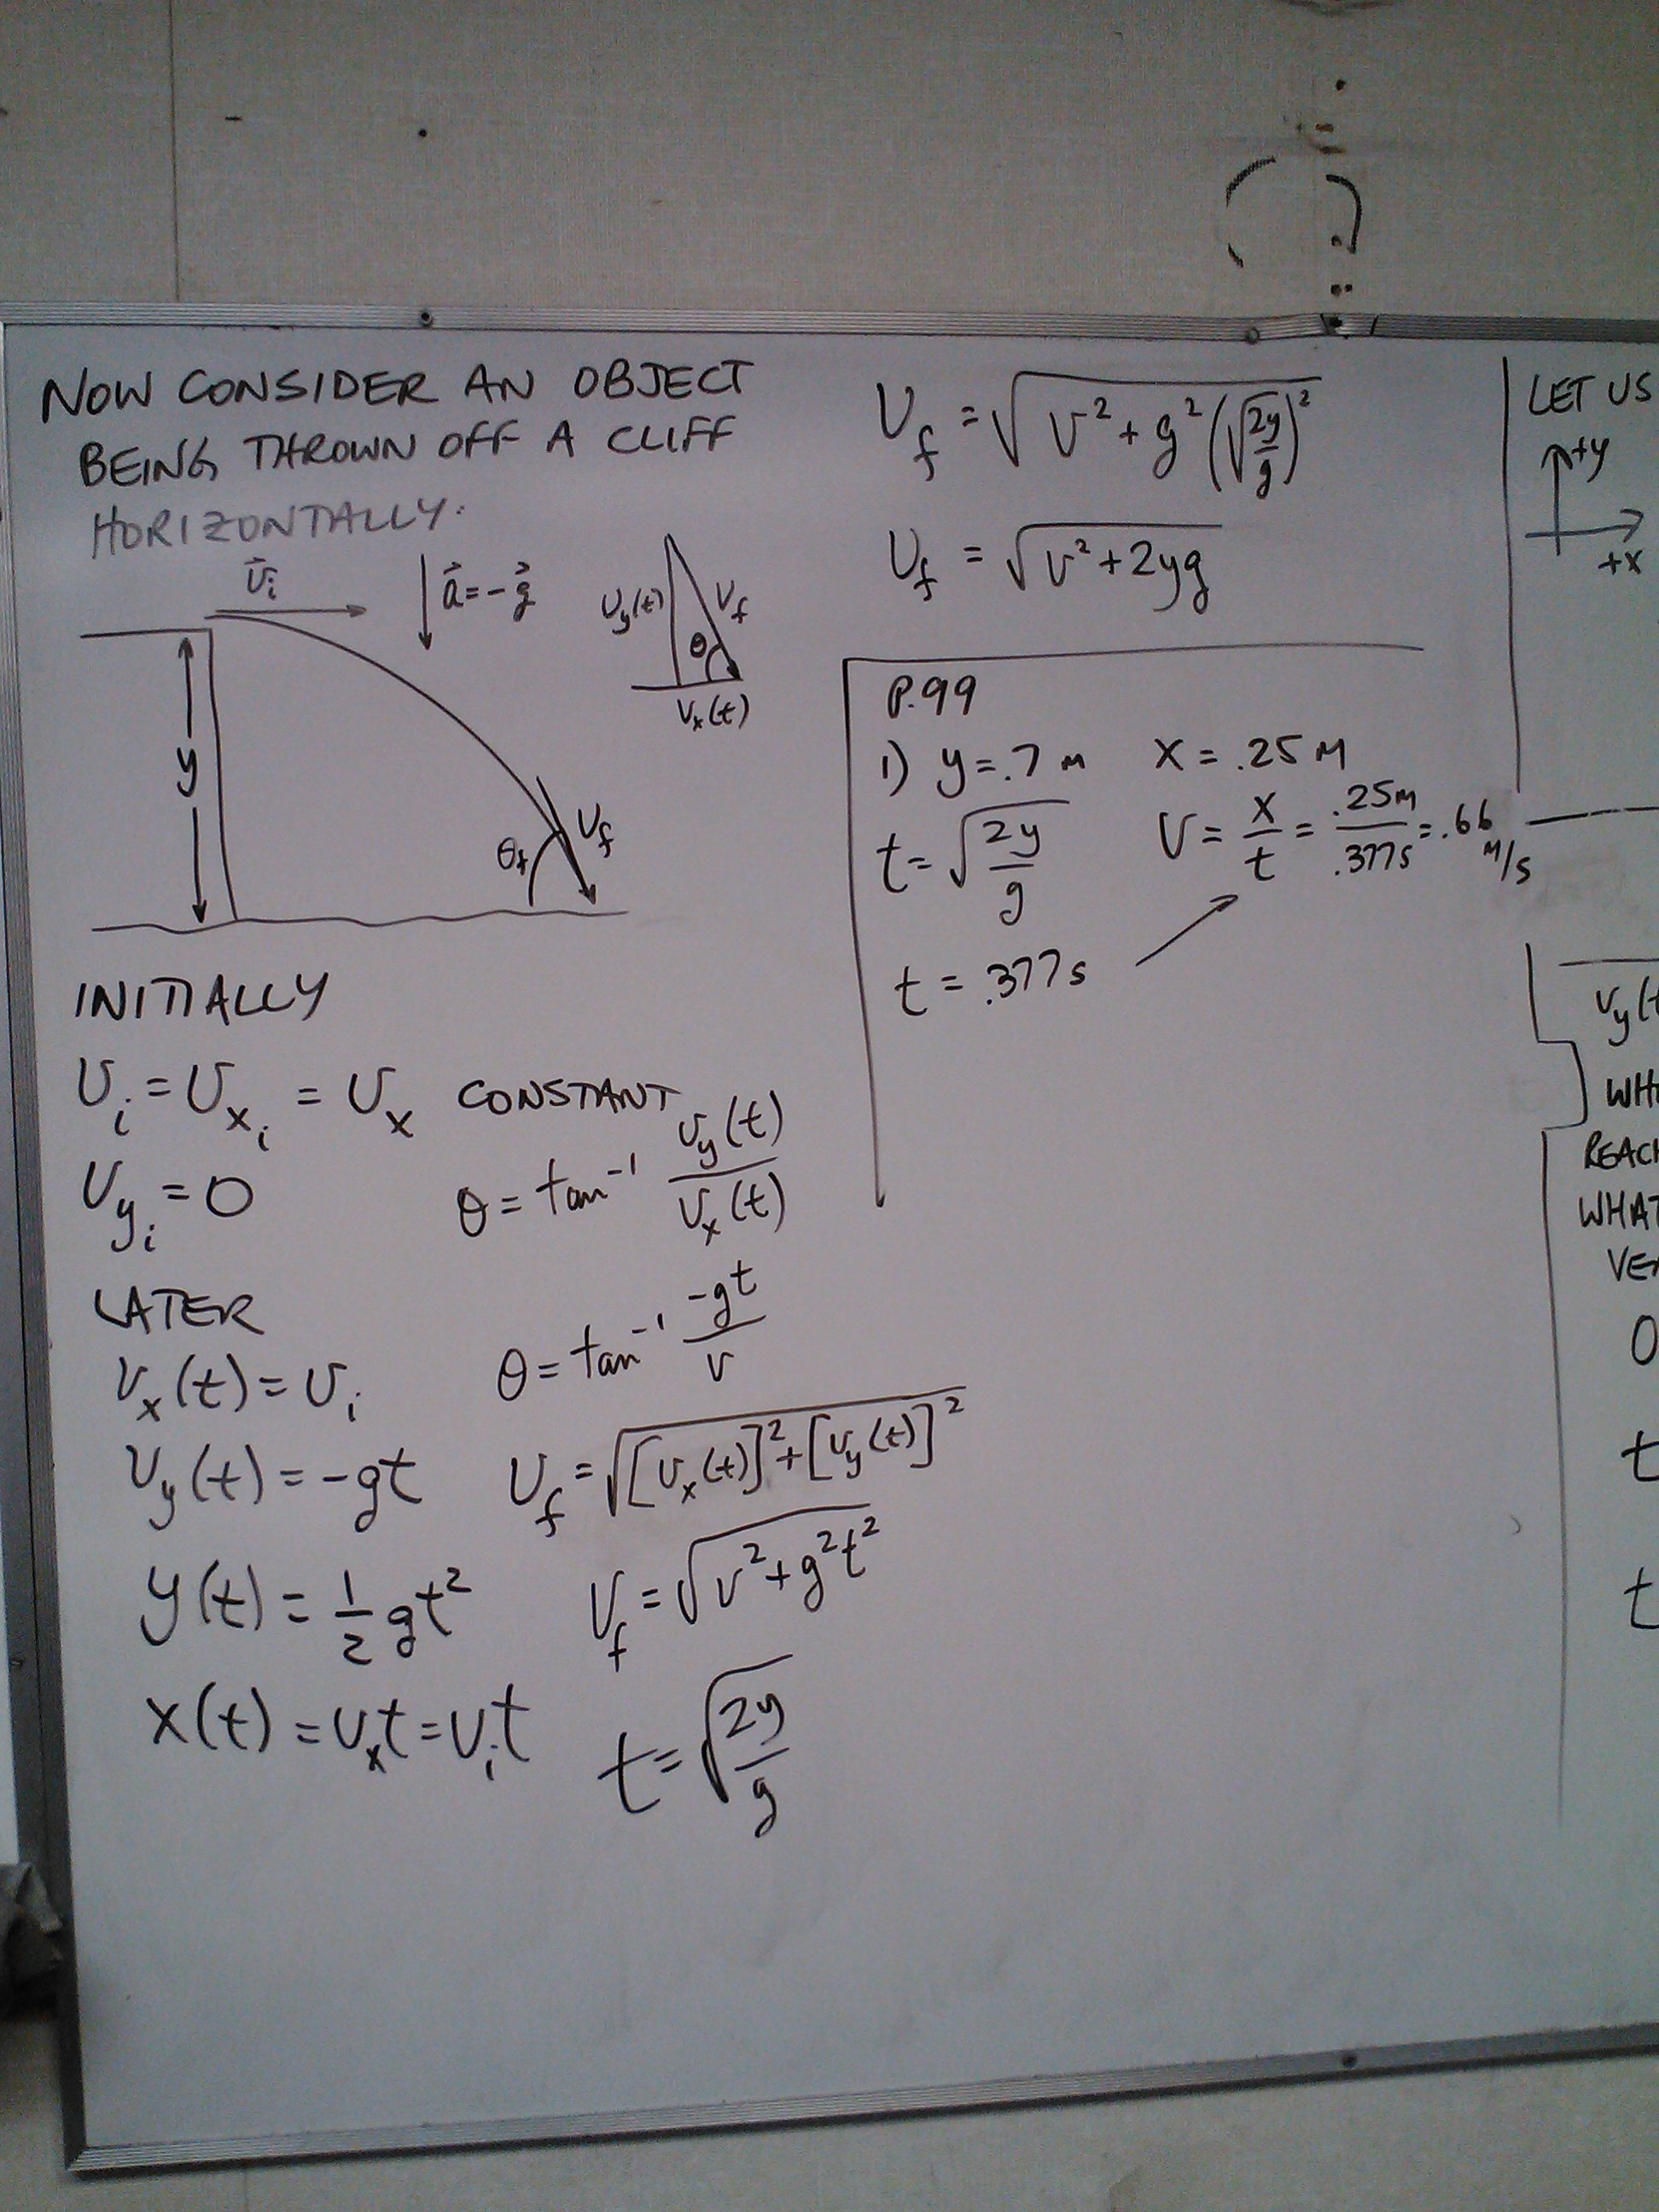 NOW CONSIDER AN OBJECT
BEING THROWN OFF A CLIFF
HORIZONTALLY.
v⃗ᵢ
a⃗ = -g⃗
v_y(t)
v_f
θ
v_x(t)
y
θ_f
v_f
INITIALLY
vᵢ = v_xᵢ = v_x CONSTANT
v_yᵢ = 0
θ = tan⁻¹ v_y(t)/v_x(t)
LATER
θ = tan⁻¹ -gt/v
v_x(t) = vᵢ
v_y(t) = -gt
v_f = √([v_x(t)]² + [v_y(t)]²)
y(t) = 1/2 gt²
v_f = √(v² + g²t²)
x(t) = v_x t = vᵢt
t = √(2y/g)
v_f = √(v² + g²(√(2y/g))²)
v_f = √(v² + 2yg)
P.99
1) y = .7 m x = .25 M
t = √(2y/g)
v = x/t = .25m/.377s = .66 M/s
t = .377s
LET US
+y
+x
v_y(t
REACH
WHAT
0
t
t